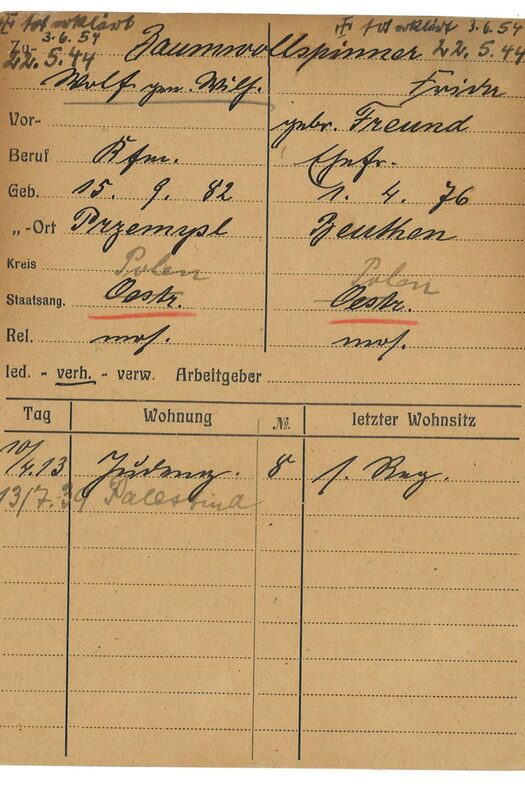 tot erklärt 3.6.54 tot erklärt 3.6.54
Zu- 22.5.44 Baumwollspinner 22.5.44
Wolf gen. Wilh. Frida
Vor- gebr. Freund
Beruf Kfm. Ehefr.
Geb. 15. 9. 82 1. 4. 76
„-Ort Przemysl Beuthen
Kreis Polen Polen
Staatsang. Oestr. Oestr.
Rel. mos. mos.
led. - verh. - verw. Arbeitgeber
Tag Wohnung № letzter Wohnsitz
10/4.13 8 s. Reg.
13/7.39 Palestina